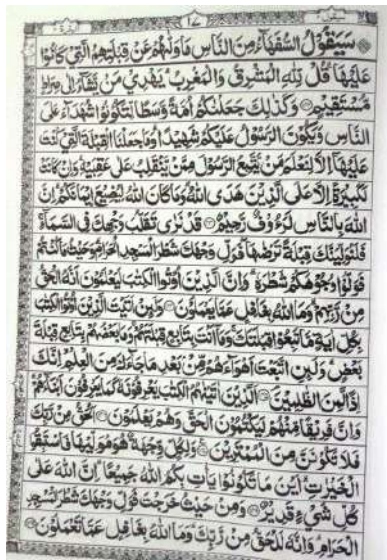 سَيَقُوۡلُ السُّفَهَآءُ مِنَ النَّاسِ مَا وَلّٰىهُمۡ عَنۡ قِبۡلَتِهِمُ الَّتِىۡ كَانُوۡا
عَلَيۡهَا قُلْ لِّلّٰهِ الۡمَشۡرِقُ وَالۡمَغۡرِبُ يَهۡدِىۡ مَنۡ يَّشَآءُ اِلٰى صِرَاطٍ
مُّسۡتَقِيۡمٍ وَكَذٰلِكَ جَعَلۡنٰكُمۡ اُمَّةً وَّسَطًا لِّتَکُوۡنُوۡا شُهَدَآءَ عَلَى
النَّاسِ وَيَكُوۡنَ الرَّسُوۡلُ عَلَيۡكُمۡ شَهِيۡدًا وَمَا جَعَلۡنَا الۡقِبۡلَةَ الَّتِىۡ كُنۡتَ
عَلَيۡهَآ اِلَّا لِنَعۡلَمَ مَنۡ يَّتَّبِعُ الرَّسُوۡلَ مِمَّنۡ يَّنۡقَلِبُ عَلٰى عَقِبَيۡهِ وَاِنۡ كَانَتۡ
لَكَبِيۡرَةً اِلَّا عَلَى الَّذِيۡنَ هَدَى اللّٰهُ وَمَا كَانَ اللّٰهُ لِيُضِيْعَ اِيۡمَانَكُمۡ اِنَّ
اللّٰهَ بِالنَّاسِ لَرَءُوۡفٌ رَّحِيۡمٌ قَدۡ نَرٰى تَقَلُّبَ وَجۡهِكَ فِى السَّمَآءِ
فَلَـنُوَلِّيَنَّكَ قِبۡلَةً تَرۡضٰٮهَا فَوَلِّ وَجۡهَكَ شَطۡرَ الۡمَسۡجِدِ الۡحَرَامِ وَحَيۡثُ مَا كُنۡتُمۡ
فَوَلُّوۡا وُجُوۡهَكُمۡ شَطۡرَهٗ وَاِنَّ الَّذِيۡنَ اُوۡتُوا الۡكِتٰبَ لَيَـعۡلَمُوۡنَ اَنَّهُ الۡحَـقُّ
مِنۡ رَّبِّهِمۡ وَمَا اللّٰهُ بِغَافِلٍ عَمَّا يَعۡمَلُوۡنَ وَلَئِنۡ اَ تَيۡتَ الَّذِيۡنَ اُوۡتُوا الۡكِتٰبَ
بِكُلِّ اٰيَةٍ مَّا تَبِعُوۡا قِبۡلَتَكَ وَمَآ اَنۡتَ بِتَابِعٍ قِبۡلَتَهُمۡ وَمَا بَعۡضُهُمۡ بِتَابِعٍ قِبۡلَةَ
بَعۡضٍ وَلَئِنِ اتَّبَعۡتَ اَهۡوَآءَهُمۡ مِّنۡ بَعۡدِ مَا جَآءَكَ مِنَ الۡعِلۡمِ اِنَّكَ
اِذًا لَّمِنَ الظّٰلِمِيۡنَ اَلَّذِيۡنَ اٰتَيۡنٰهُمُ الۡكِتٰبَ يَعۡرِفُوۡنَهٗ كَمَا يَعۡرِفُوۡنَ اَبۡنَآءَهُمۡ
وَاِنَّ فَرِيۡقًا مِّنۡهُمۡ لَيَكۡتُمُوۡنَ الۡحَـقَّ وَهُمۡ يَعۡلَمُوۡنَ اَلۡحَـقُّ مِنۡ رَّبِّكَ
فَلَا تَكُوۡنَنَّ مِنَ الۡمُمۡتَرِيۡنَ وَلِكُلٍّ وِّجۡهَةٌ هُوَ مُوَلِّيۡهَا فَاسۡتَبِقُوا
الۡخَيۡرٰتِ اَيۡنَ مَا تَكُوۡنُوۡا يَاۡتِ بِكُمُ اللّٰهُ جَمِيۡعًا اِنَّ اللّٰهَ عَلٰى
كُلِّ شَىۡءٍ قَدِيۡرٌ وَمِنۡ حَيۡثُ خَرَجۡتَ فَوَلِّ وَجۡهَكَ شَطۡرَ الۡمَسۡجِدِ
الۡحَـرَامِ وَاِنَّهٗ لَـلۡحَـقُّ مِنۡ رَّبِّكَ وَمَا اللّٰهُ بِغَافِلٍ عَمَّا تَعۡمَلُوۡنَ